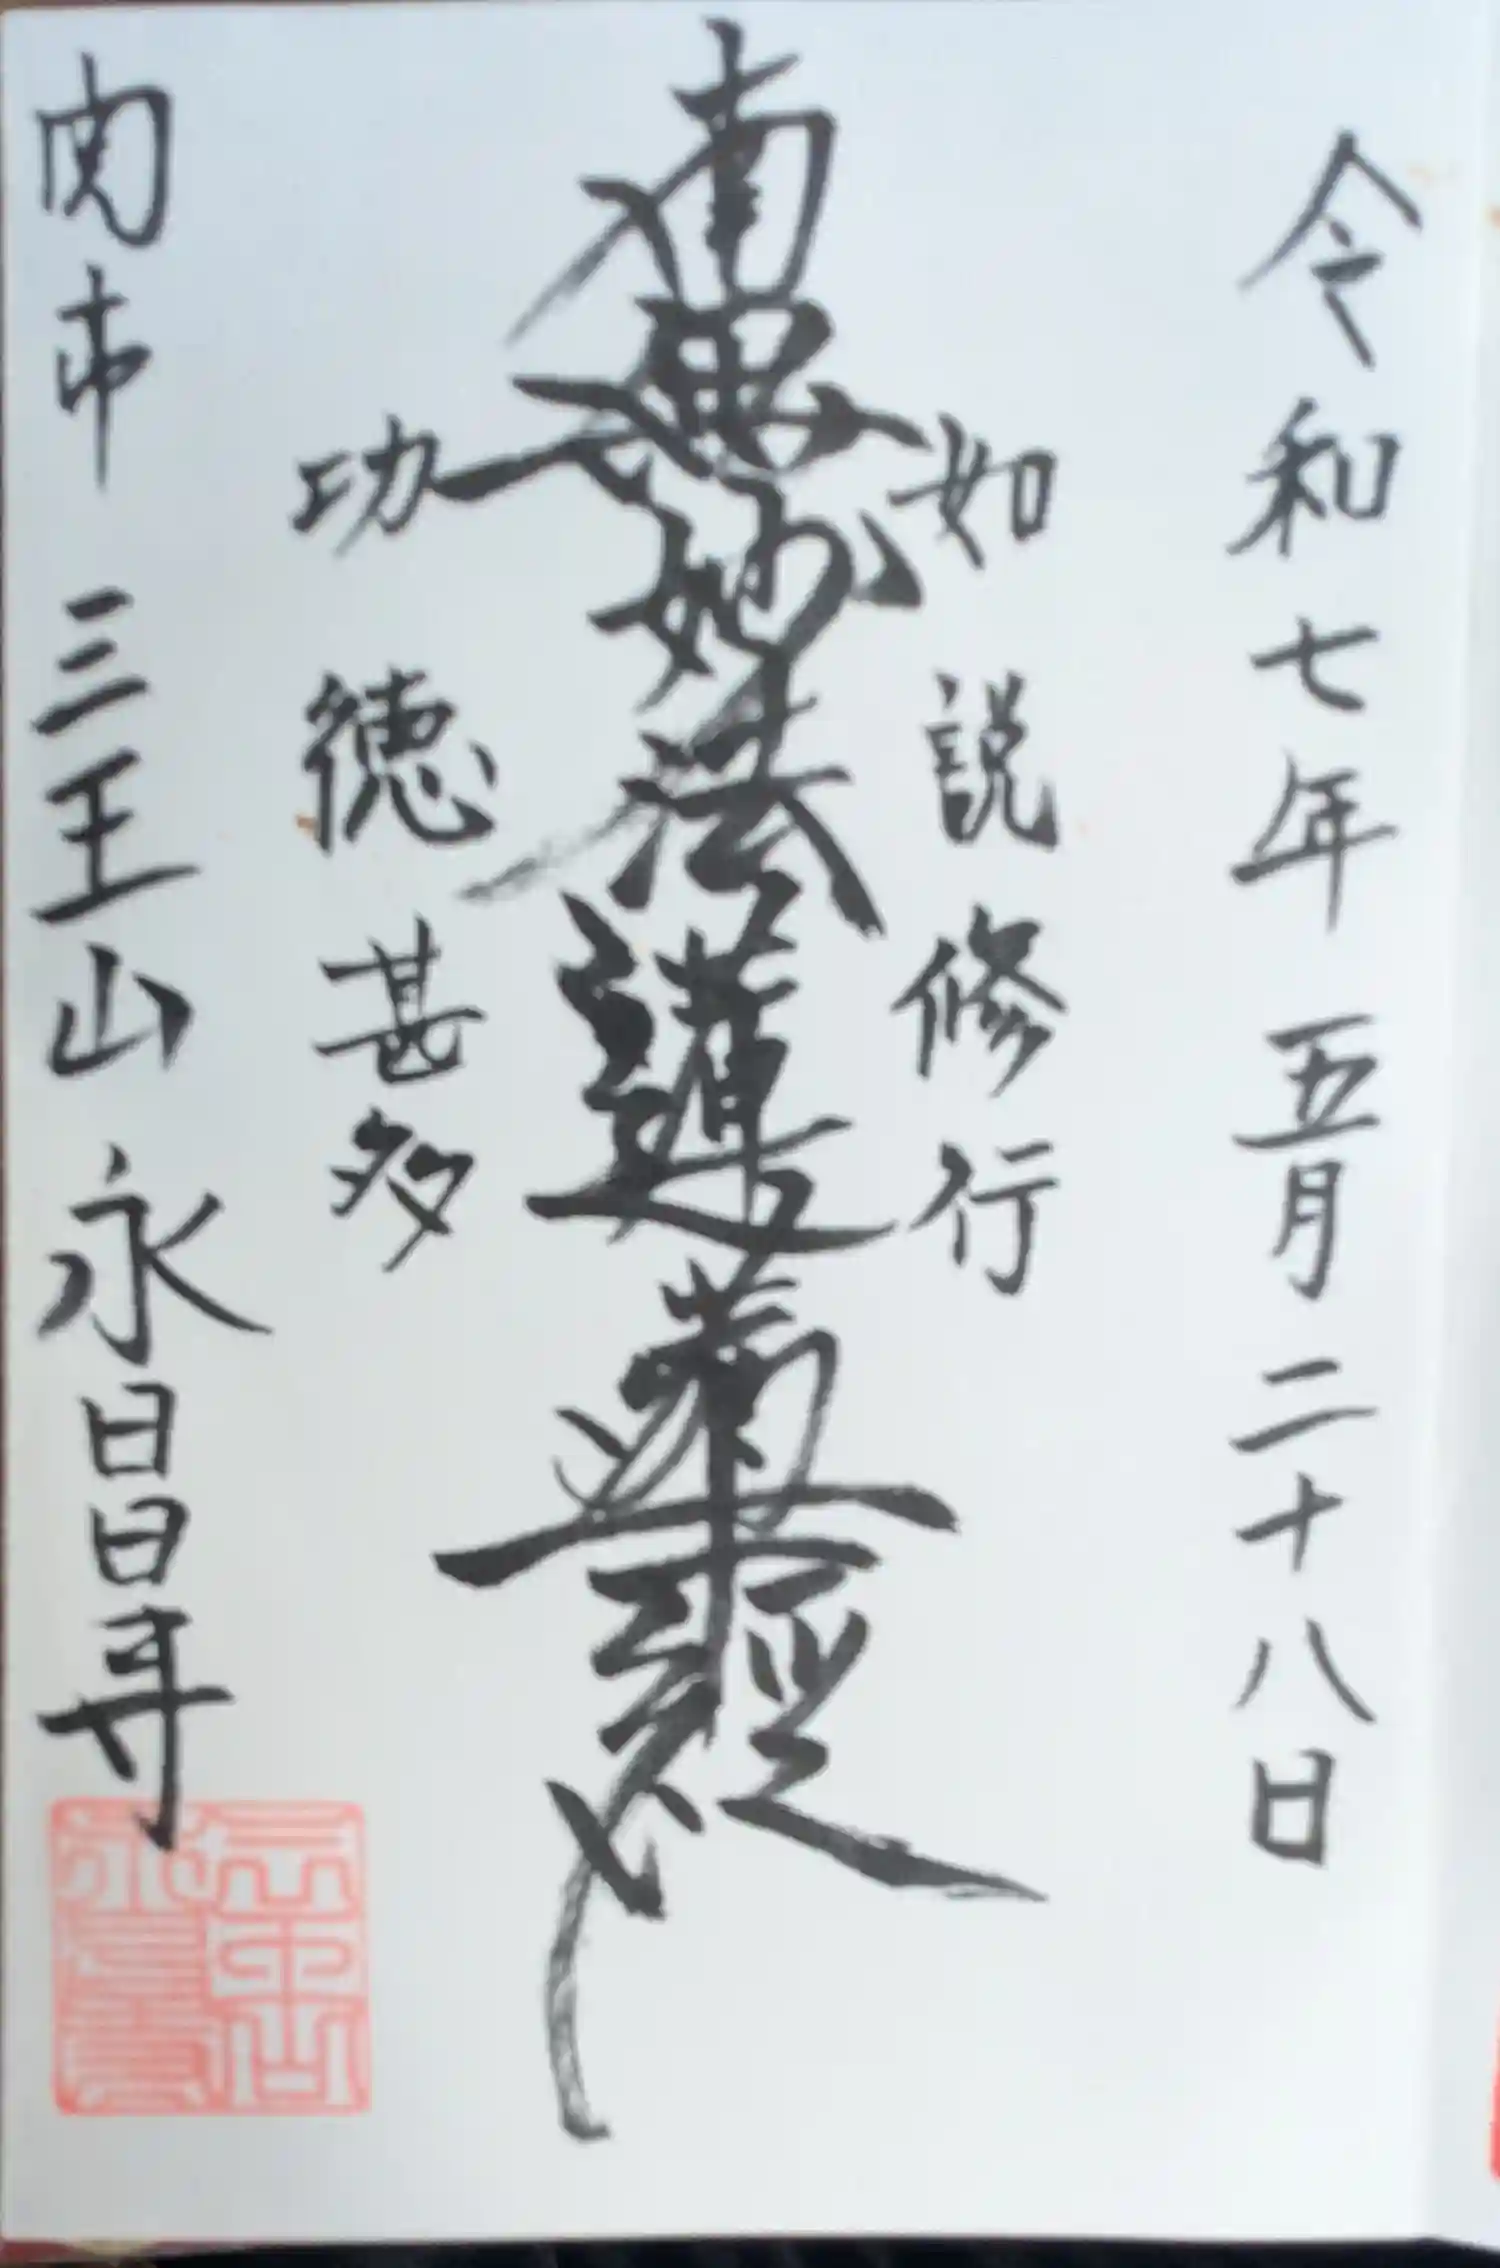 令和七年五月二十八日
如説修行
南無妙法蓮華経
功徳甚多
関市 三王山 永昌寺